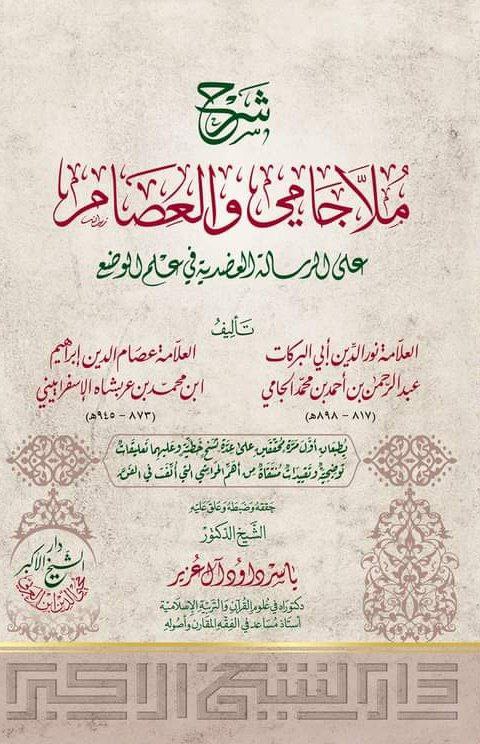 شرح
مُلَّا جَامِي وَالعِصَام
على الرسالة العضدية في علم الوضع
تأليف
العلّامة نور الدِّين أبي البركات
عبد الرحمٰن بن أحمد بن محمّد الجامي
(٨١٧ - ٨٩٨هـ)
العلّامة عصام الدين إبراهيم
ابن محمّد بن عربشاه الإسفراييني
(٨٧٣ - ٩٤٥هـ)
يُطبعان أوّل مرّة محققين على عدّة نُسخ خطّيّة وعليهما تعليقات
توضيحيّة وتقييدات مُنتقاة من أهمّ الحواشي التي أُلّفت في الفنّ
حققه وضبطه وعلق عليه
الشيخ الدكتور
ياسر داؤد آل عُزير
دكتوراه في علوم القرآن والتربية الإسلاميّة
أستاذ مُساعد في الفقه المقارن وأصوله
دار
الشيخ الأكبر
محيي الدين ابن العربي
دار الشيخ الأكبر